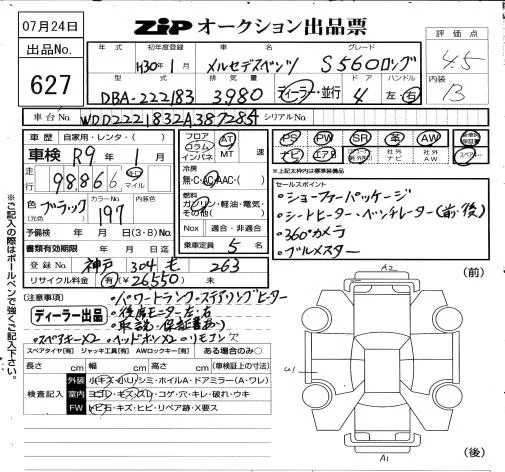 07月24日
出品No.
627
ZIP オークション出品票
年式 初年度登録 車名 グレード
H30年1月 メルセデスベンツ S560ロング
型式 排気量 ドア ハンドル
DBA-222183 3,980 ディーラー・並行 4 左・右
評価点
4.5
内装
B
車台No WDD2221832A387284 シリアルNo.
車歴 自家用・レンタ・( )
車検 R9年 1月
走行 98,866 キロ マイル
色 (元色) ブラック カラーNo 197 内装色
予備検 年 月 日(3・8)No.
書類有効期限 年 月 日迄
登録No. 神戸 304 も 263
リサイクル料金 (有)(¥26,550) 未
フロア コラム インパネ AT MT 速
冷房 無・C・AC(AAC・( )
燃料 ガソリン・軽油・電気・その他( )
Nox 適合・非適合
乗車定員 5 名
PS PW SR 革 AW
ナビ エアB 社外ナビ 社外AW スペアキー
*上記太枠内は標準装備品
セールスポイント
・ショーファーパッケージ
・シートヒーター・ベンチレーター(前・後)
・360°カメラ
・ブルメスター
※ご記入の際はボールペンで強くご記入下さい。
(注意事項)
ディーラー出品
・パワートランク・ステアリングヒーター
・後席モニター左・右
・取説・保証書あり
・スペアキー×2 ・ヘッドホン×2 ・リモコン欠
スペアタイヤ[有] ジャッキ工具[有] AWロックキー[有] ある場合のみ○
長さ cm 幅 cm 高さ cm (車検証上の寸法)
検査記入
外装 小キズ・小凹・シミ・ホイルA・ドアミラー(A・ワレ)
室内 ヨゴレ・キズ・スレ・コゲ・穴・キレ・破れ・ウキ
FW トビ石・キズ・ヒビ・リペア跡・X要ス
(前)
A2
U1
A1
(後)